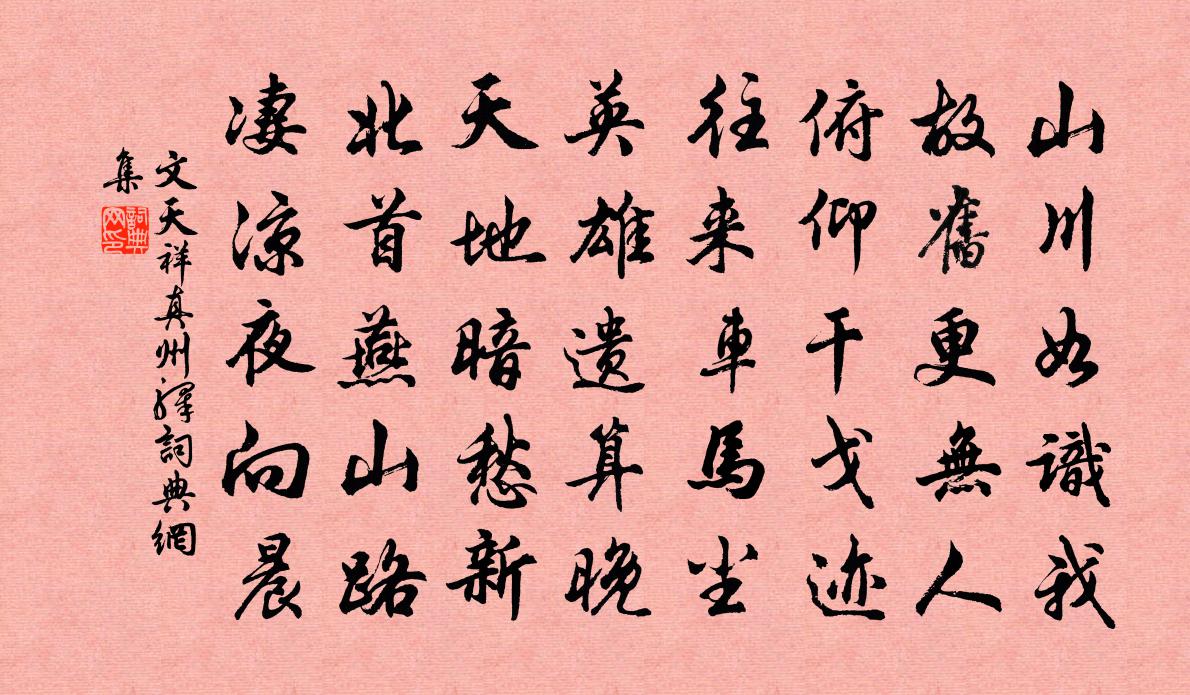 山川如識我
故舊更無人
俯仰干戈迹
往来車馬尘
英雄遗算晚
天地暗愁新
北首燕山路
凄凉夜向晨
文天祥真州驛詞典網
集
詞典
网印